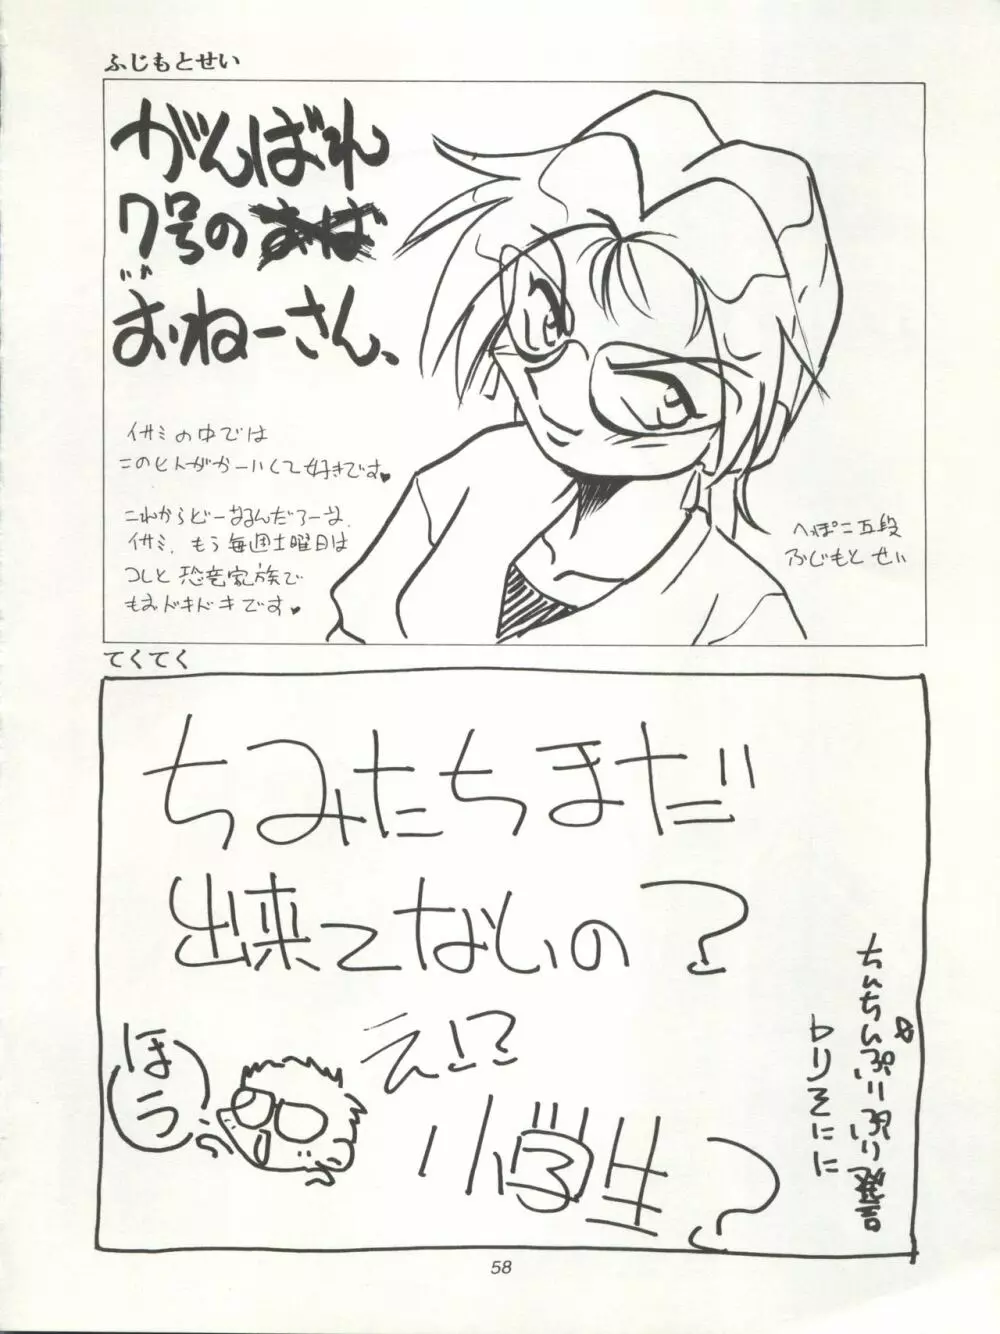 ふじもとせい
がんばれ
7号の
おねーさん、
イサミの中では
このヒトがかーいくて好きです♥
これからどーなるんだろーな、
イサミ。もう毎週土曜日は
コレと恐竜家族で
もおドキドキです♥
へっぽこ五段
ふじもと せい
てくてく
ちみたちまだ
出来てないの?
ほう
え!?
小学生?
ちんちんぷりぷり発言
トリオに
58